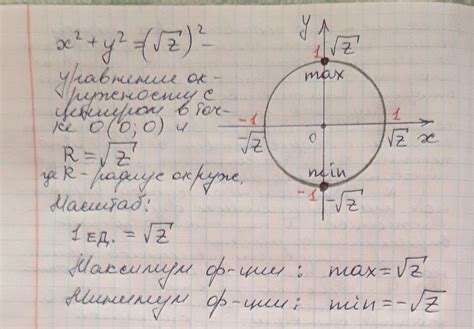 x² + y² = (√z)² –
уравнение ок-
ружности с
центром в точ-
ке O(0; 0) и
R = √z
за R - радиус окруж.
Масштаб:
1 ед. = √z
Максимум ф-ции: max = √z
Минимум ф-ции: min = -√z
y
1 √z
max
-1
-√z
0
1
√z x
min
-1 -√z